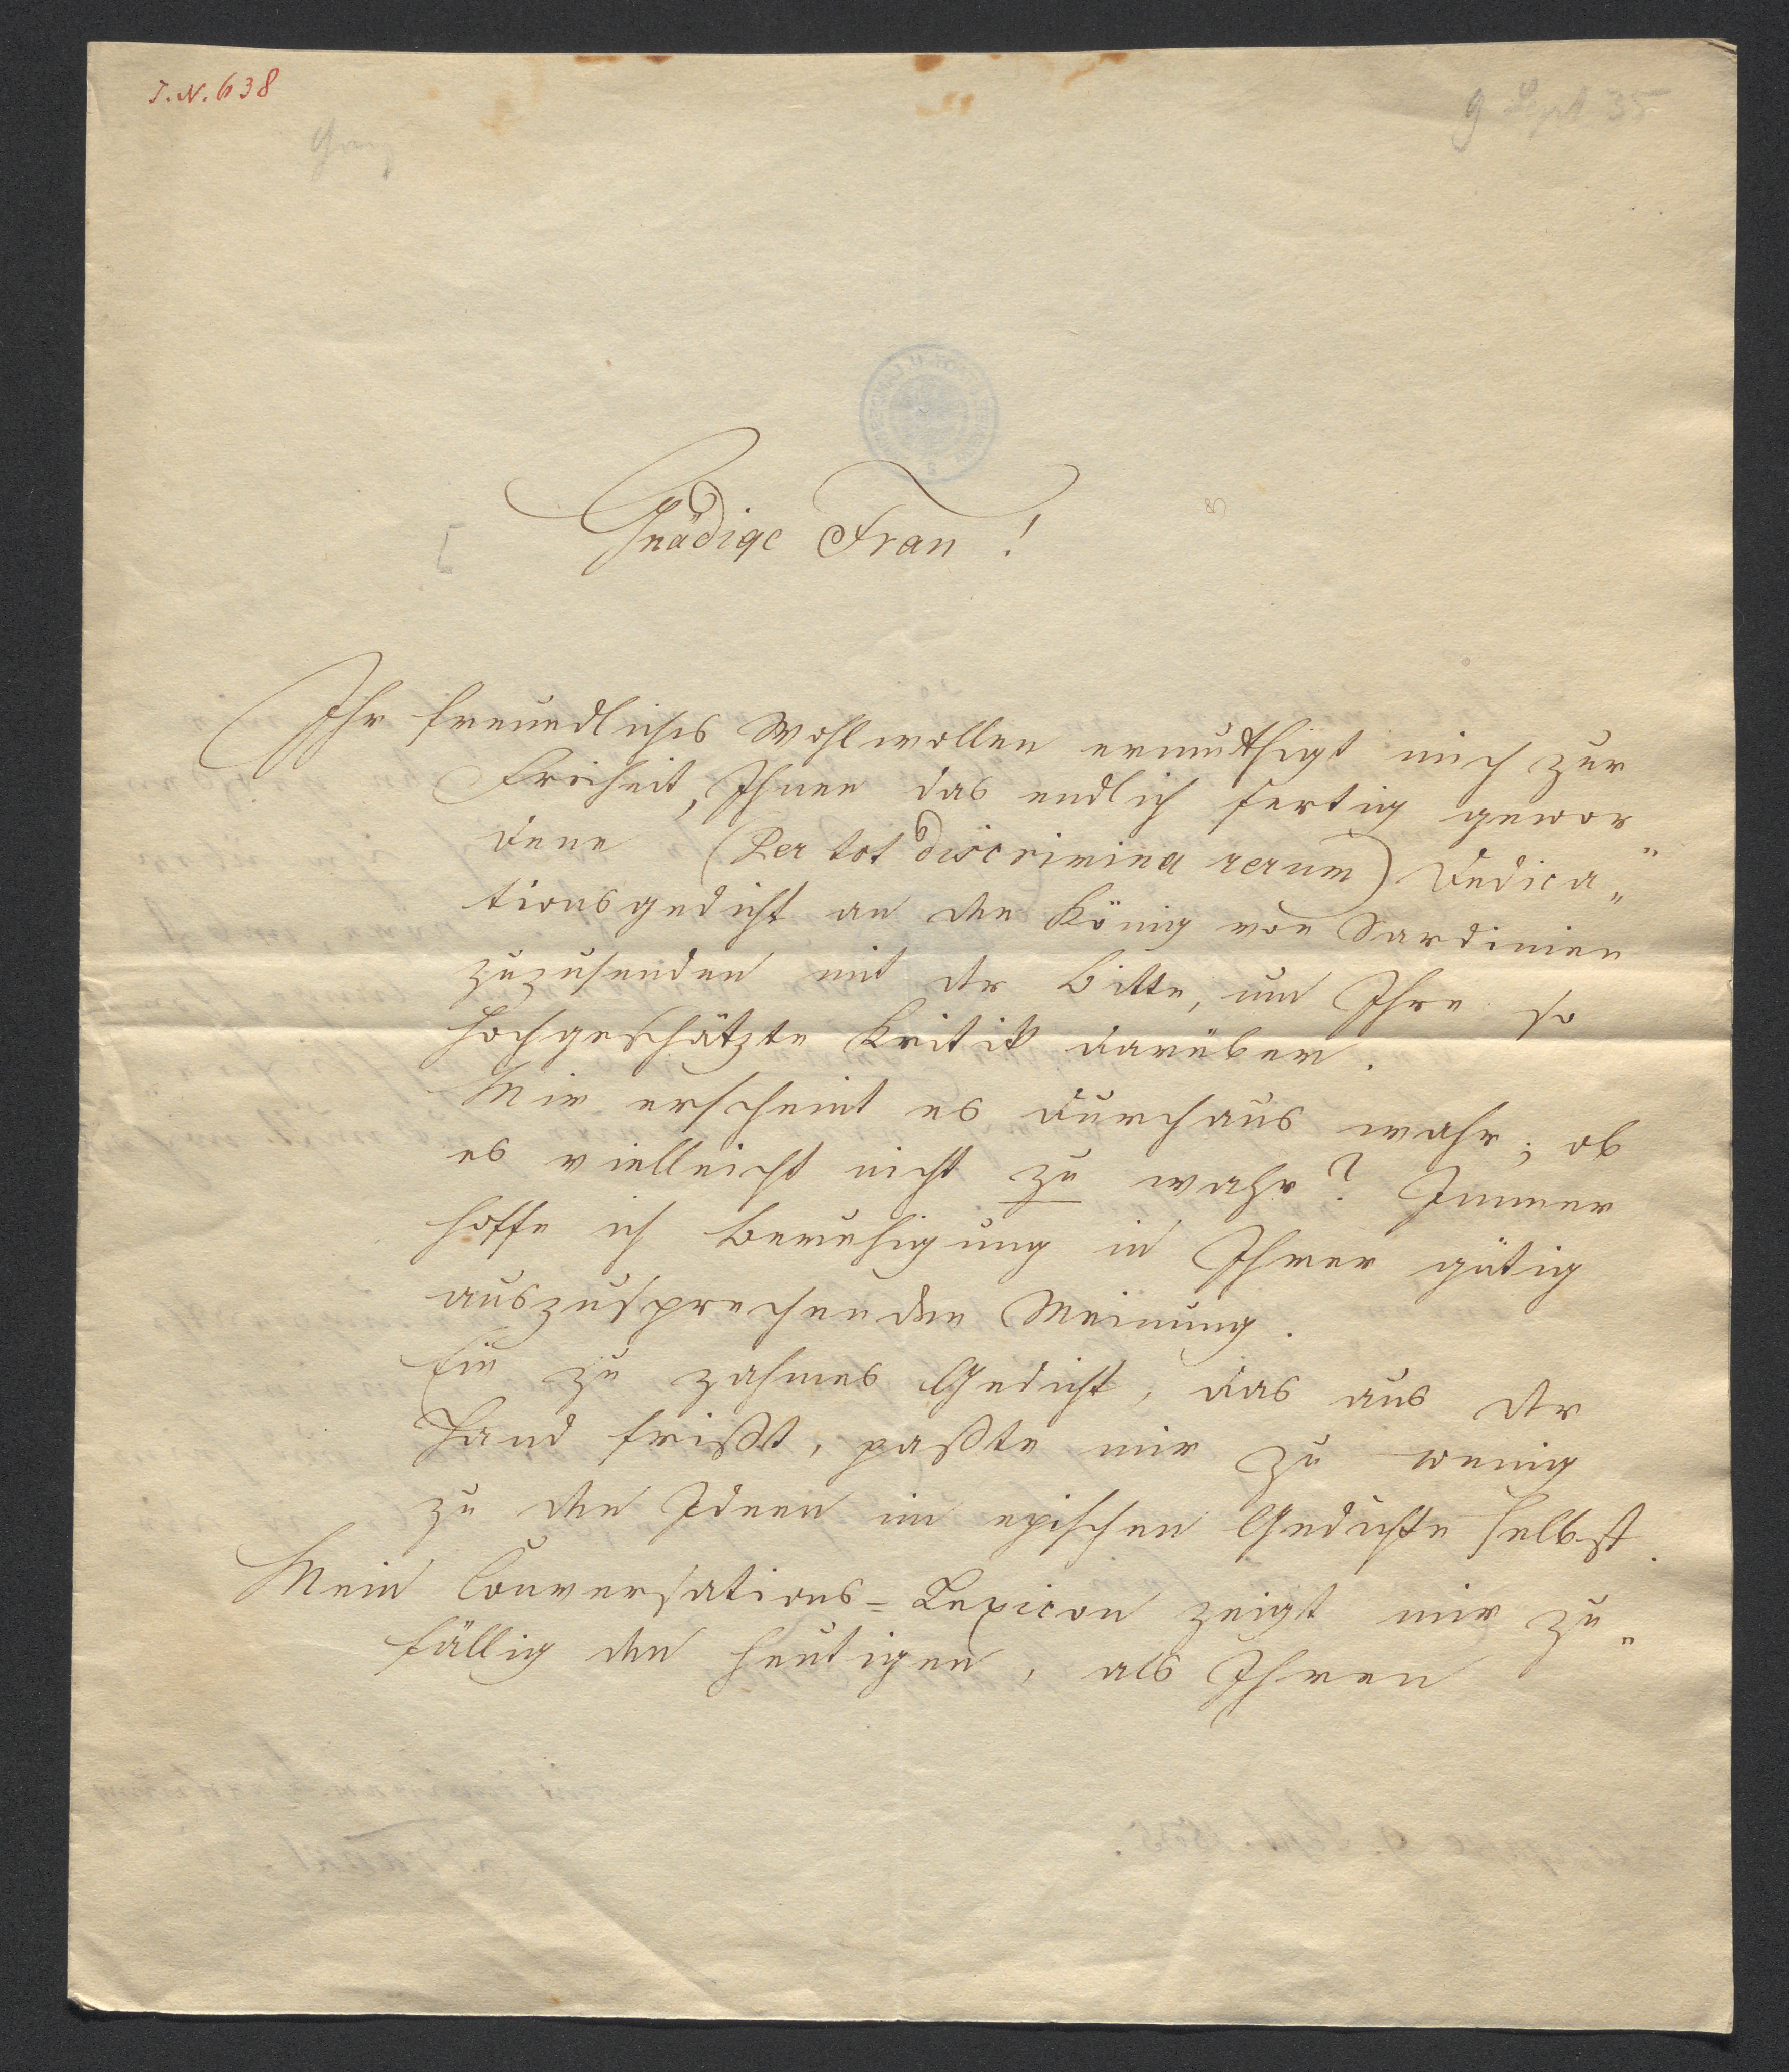 I.N. 638
9 Sept 35
Gnädige Frau!
Ihr freundliches Wohlwollen ermuthigt mich zur
Freiheit, Ihnen das endlich fertig gewor„
dene (Per tot discrimina rerum) Dedica„
tionsgedicht an den König von Sardinien
zuzusenden mit der Bitte, um Ihre so
hochgeschätzte Kritik darüber.
Mir erscheint es durchaus wahr; ob
es vielleicht nicht zu wahr? Immer
hoffe ich Beruhigung in Ihrer gütig
auszusprechenden Meinung.
Ein zu zahmes Gedicht, das aus der
Hand frißt, paßte mir zu wenig
zu den Ideen im epischen Gedichte selbst.
Mein Conversations=Lexicon zeigt mir zu„
fällig den heutigen, als Ihren